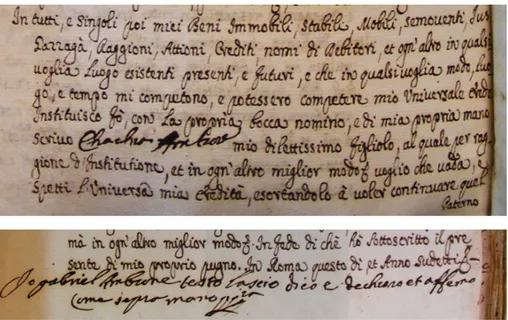 In tutti, e singoli poi miei Beni Immobili, Stabili, Mobili, semoventi, Jus
Raggioni, Attioni, Crediti nomi di Debitori, et ogn'altro in qualsi
voglia Luogo esistenti presenti, e futuri, e che in qualsivoglia modo, luo
go, e tempo mi competono, e potessero competere mio Universale erede
Instituisco Io, con la propria bocca nomino, e di mia propria mano
scrivo mio dilettissimo figliolo, al quale per rag
gione d'Institutione, et in ogn'altro miglior modo voglio che vada, e
spetti l'Universa mia eredità, esortandolo à voler continuare quel
Paterno
mà in ogn'altro miglior modo. In fede di che hò sottoscritto il pre
sente di mio proprio pugno. In Roma questo di et Anno sudetti
Io gabriel testo lascio dico e dechiaro et affermo
Come sopra mano